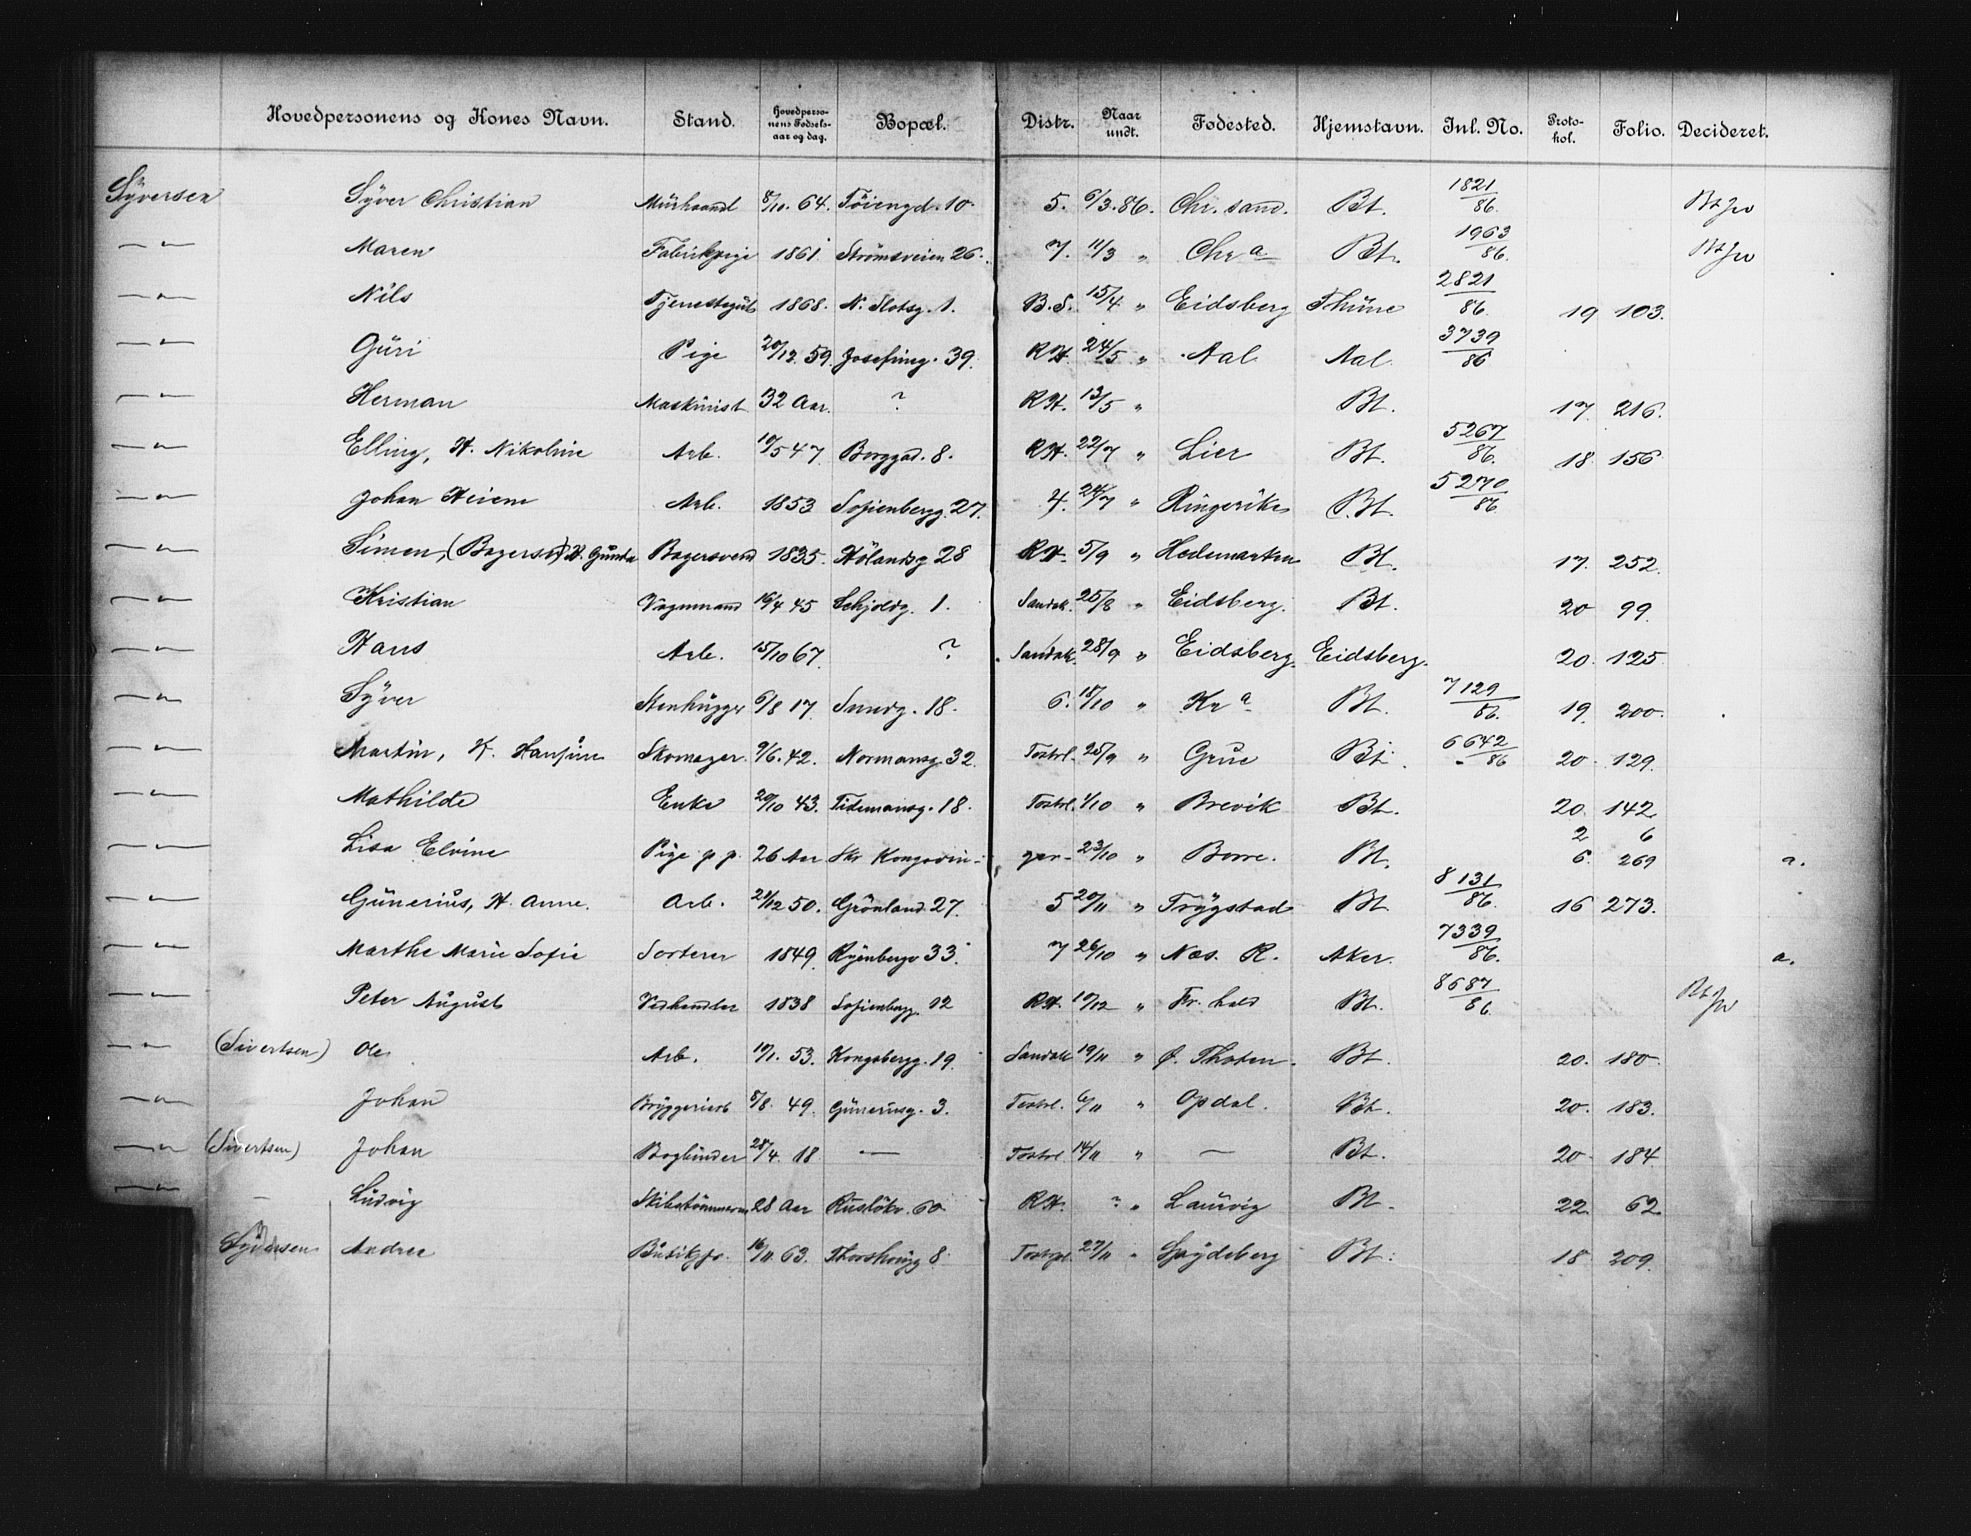 Hovedpersonens og Kones Navn. Stand. Hovedpersonens Fødselsaar og dag. Bopæl. Distr. Naar undt. Fødested. Hjemstavn. Inl. No. Protokol. Folio. Decideret.
Syversen Syver Christian Murhaandl 8/11. 64. Töiengd. 10. 5. 6/3. 86. Chr. sand. Bt. 1821/86.
— " — Maren Fabrikpige 1861 Strömsveien 26. 7. 11/3 " Chr a Bt. 1963/86.
— " — Nils Tjenestegut 1868. N. Slotsg. 1. B.S. 15/4. " Eidsberg Thune 2821/86. 19 103.
— " — Guri Pige 20/12 59. Josefineg. 39. RH. 24/5 " Aal Aal 3739/86
— " — Herman Maskinist 32 Aar. ? RH. 13/5 " Bt. 17. 216.
— " — Elling, H. Nikoline Arb. 10/5 47. Borggd. 8. RH. 22/7 " Lier Bt. 5267/86. 18 156
— " — Johan Arb. 1853 Sofienbergg. 27. 4. 24/7 " Ringerike Bt. 5270/86
— " — Simen, (Bagersv) H. Gunda Bagersvend 1835. Hölandsg 28 RH. 5/9 " Hedemarken Bt. 17. 252.
— " — Kristian Vognmand 16/4 45 Schjoldg. 1. Sandak. 25/8 " Eidsberg. Bt. 20 99.
— " — Hans Arb. 15/10 67. ? Sandak. 28/9 " Eidsberg. Eidsberg. 20. 125
— " — Syver Stenhugger 6/8 17. Sundg. 18. 6. 18/10 " Kr a Bt. 7129/86. 19. 200.
— " — Martin, H. Hansine Skomager. 9/6. 42. Normansg. 32. Tostrl. 25/9 " Grue Bt. 6642/86 20. 129.
— " — Mathilde Enke 20/10 43. Tidemansg. 18. Tostrl. 1/10 " Brevik Bt. 20. 142
— " — Lisa Elvine Pige p. p. 26 Aar Skr Kongsvin- ger- 23/10 " Borre. Bt. 2 6 6. 269 a.
— " — Gunerius, H. Anne. Arb. 21/12 50. Grönland. 27. 5 20/11 " Trygstad Bt 8131/86. 16 273.
— " — Marthe Marie Sofie Sorterer 1849. Ryenbergv 33. 7 26/10 " Næs. R. Aker. 7339/86. a.
— " — Peter August Vedhandler 1838 Sofienbergg. 12 RH. 10/12 " Fr. hald Bt. 8687/86.
— " — (Sivertsen) Ole Arb. 10/1. 53. Kongsbergg. 19. Sandak 19/11 " Ø. Thoten. Bt. 20. 180.
— " — Johan Bryggeriarb 5/8. 49. Guneriusg. 3. Tostrl. 6/11 " Opdal. Bt. 20. 183.
— " — (Sivertsen) Johan Bogbinder 28/4. 18 — Tostrl. 14/11 " — Bt. 20. 184.
— " — Ludvig Skibstömmerm 28 Aar Ruslökv. 60 RH. ? " Laurvig Bt. 22. 62
Andrea Butikfr. 16/11 63. Thorshaugg 8. Tostrl. 27/11 " Spydeberg Bt. 18 209.